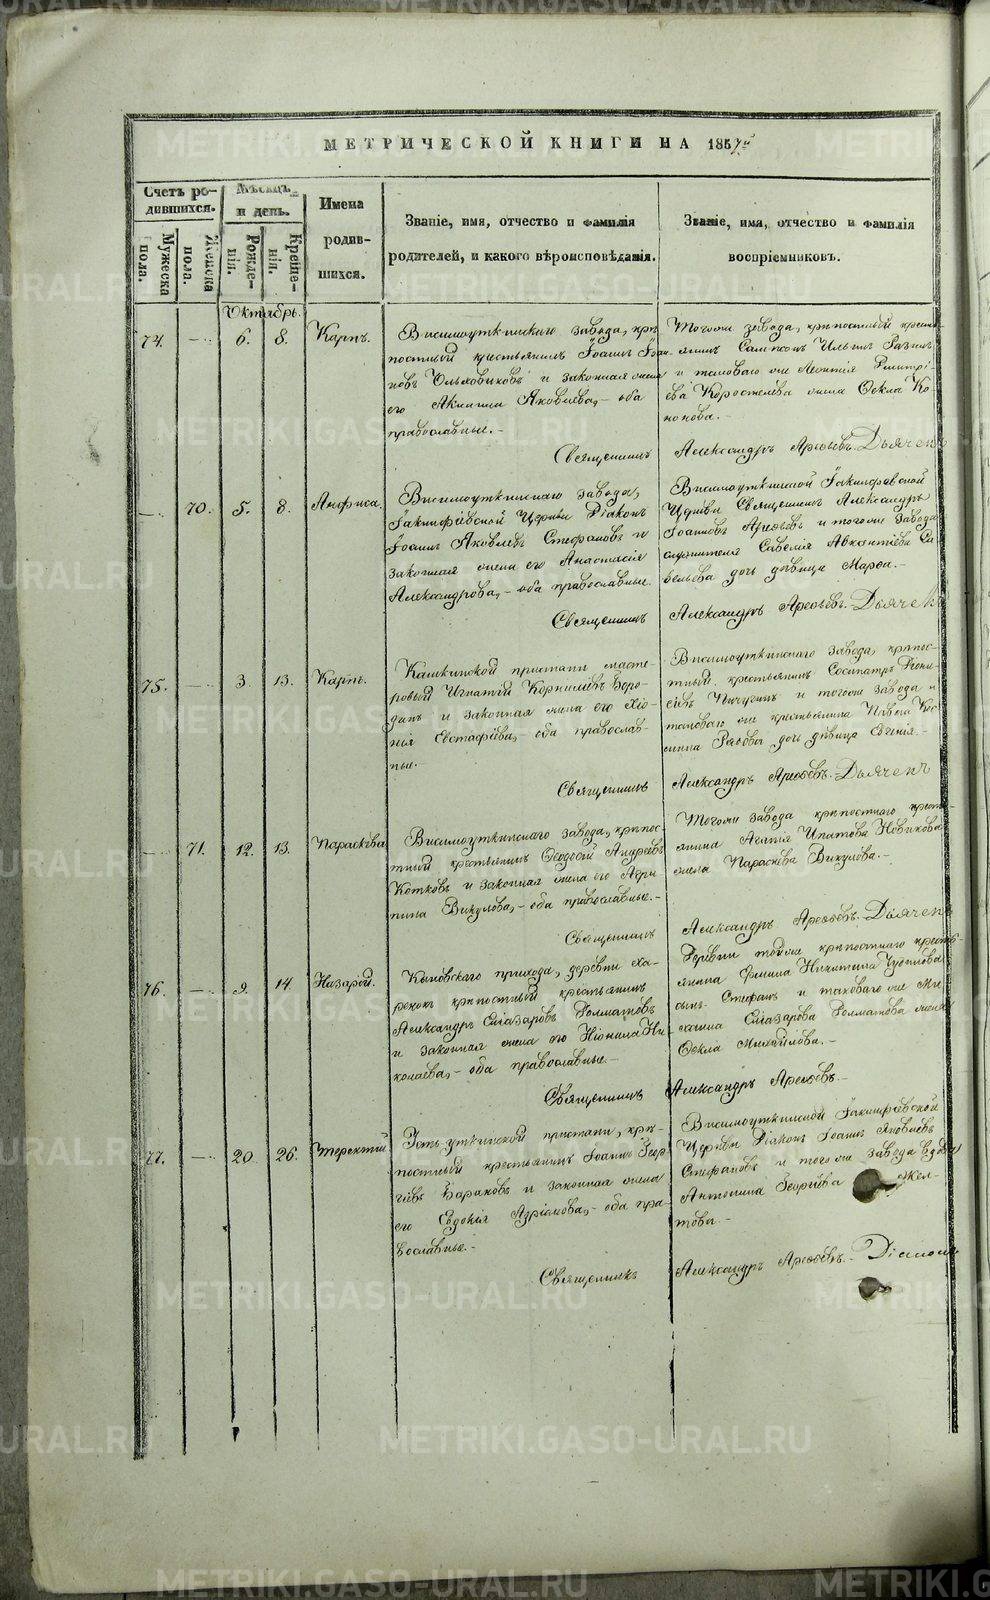 МЕТРИЧЕСКОЙ КНИГИ НА 1857й
Счетъ ро-
дившихся.
Мужеска пола.
Женска пола.
Мѣсяцъ
и день.
Рожде-
нія.
Креще-
нія.
Имена
родив-
шихся.
Званіе, имя, отчество и фамилія
родителей, и какого вѣроисповѣданія.
Званіе, имя, отчество и фамилія
воспріемниковъ.
Октябрь.
74. — 6. 8. Карпъ.
Висимоуткинскаго завода, крѣ-
постный крестьянинъ Іоаннъ Іоан-
новъ Ольховиковъ и законная жена
его Акилина Яковлева, — оба
православные. —
Тогоже завода, крѣпостный кресть-
янинъ Сампсонъ Ильинъ
и таковаго же Леонтія Димитрі-
ева Коростелева жена Ѳекла Ко-
нонова. —
Священникъ Александръ Арефьевъ. Дьячекъ
— 70. 5. 8. Анфиса.
Висимоуткинскаго завода,
Іакинфіевской Церкви Діаконъ
Іоаннъ Яковлевъ Стефановъ и
законная жена его Анастасія
Александрова, — оба православные.
Висимоуткинской Іакинфіевской
Церкви Священникъ Александръ
Іоанновъ Арефьевъ и тогоже завода
служителя Савелія Авксентіева Са-
вельева дочь дѣвица Марѳа. —
Священникъ Александръ Арефьевъ. Дьячекъ
75. — 3. 13. Карпъ.
Кашкинской пристани масте-
ровый Игнатій Корниловъ Боро-
динъ и законная жена его Хіо-
нія Евстафіева, оба православ-
ные. —
Висимоуткинскаго завода, крѣпос-
тный крестьянинъ Сосипатръ
Пичугинъ и тогоже завода и
таковаго же крестьянина Павла Кос-
мина дочь дѣвица Евгенія. —
Священникъ Александръ Арефьевъ. Дьячекъ
— 71. 12. 13. Параскева
Висимоуткинскаго завода, крѣпос-
тный крестьянинъ Ѳеодосій Андреевъ
Котковъ и законная жена его Агри-
пина Викулова, — оба православные. —
Тогоже завода крѣпостнаго кресть-
янина Агапія Ипатова Новикова
жена Параскева Викулова. —
Священникъ Александръ Арефьевъ. Дьячекъ
76. — 9. 14. Назарій.
Кыновскаго прихода, деревни Ха-
ренокъ крѣпостный крестьянинъ
Александръ Елеазаровъ Долматовъ
и законная жена его Неонила Ни-
колаева, — оба православные. —
Деревни тойже крѣпостнаго кресть-
янина Филипа Никитина
сынъ Стефанъ и таковаго же Ми-
хаила Елеазарова Долматова жена
Ѳекла Михайлова. —
Священникъ Александръ Арефьевъ. —
77. — 20. 26. Терентій
Усть-уткинской пристани, крѣ-
постный крестьянинъ Іоаннъ Геор-
гіевъ Бараковъ и законная жена
его Евдокія Артемова, — оба пра-
вославные. —
Висимоуткинской Іакинфіевской
Церкви Діаконъ Іоаннъ Яковлевъ
Стефановъ и того же завода вдова
Антонина Георгіева Жел-
това. —
Священникъ Александръ Арефьевъ. — Діаконъ